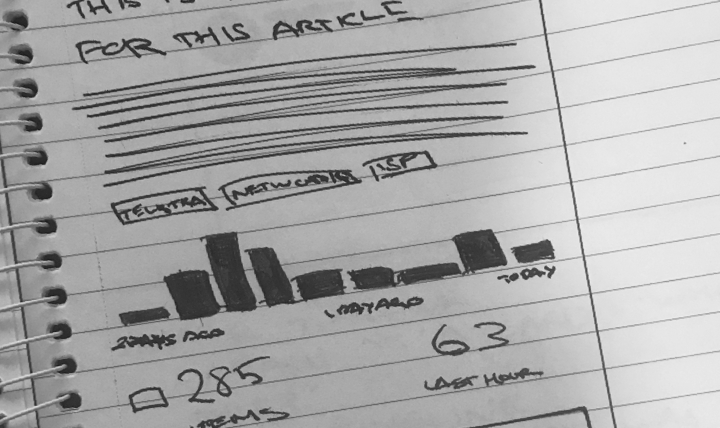 THIS
FOR THIS ARTICLE
TELSTRA NETWORKS ISP
2 DAYS AGO 1 DAY AGO TODAY
285 63
LAST HOUR